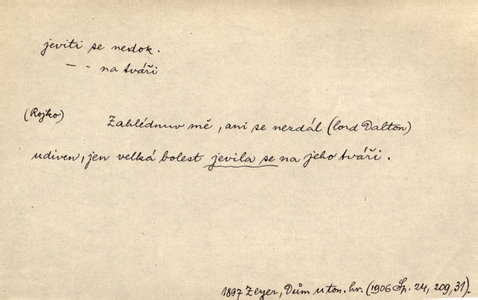 jeviti se nedok.
— - na tváři
(Rojko)
Zahlédnuv mě, ani se nezdál (lord Dalton)
udiven, jen velká bolest jevila se na jeho tváři.
1897 Zeyer, Dům u ton. hv. (1906 Sp. 24, 209, 31).